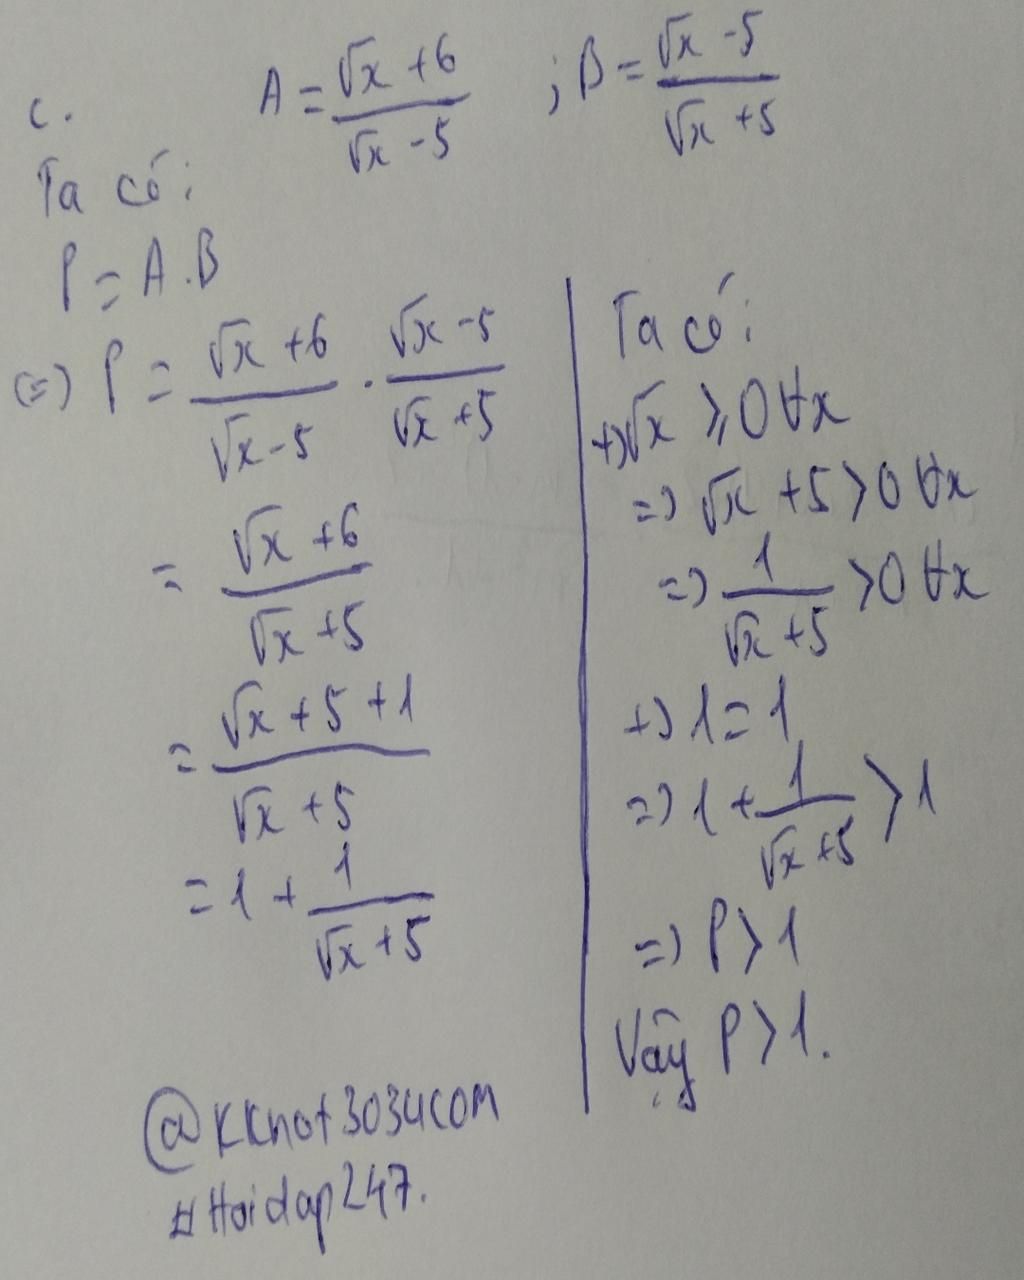 c. A = (√x + 6)/(√x - 5) ; B = (√x - 5)/(√x + 5)
Ta có:
P = A.B
(=) P = (√x + 6)/(√x - 5) . (√x - 5)/(√x + 5)
= (√x + 6)/(√x + 5)
= (√x + 5 + 1)/(√x + 5)
= 1 + 1/(√x + 5)
Ta có:
+) √x ≥ 0 ∀x
=) √x + 5 > 0 ∀x
=) 1/(√x + 5) > 0 ∀x
+) 1 = 1
=) 1 + 1/(√x + 5) > 1
=) P > 1
Vậy P > 1.
#Hoidap247.